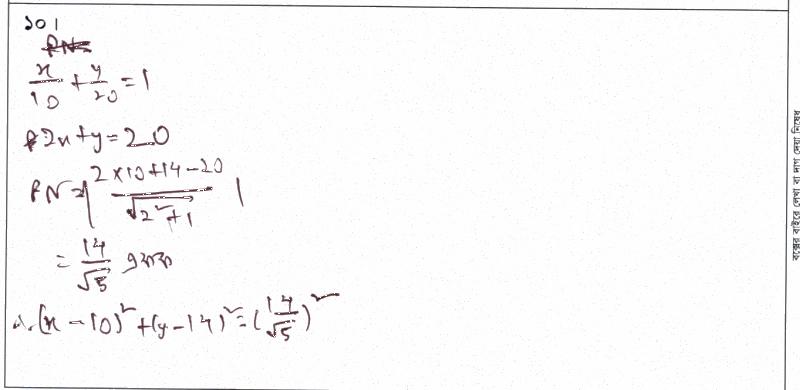 ১০।
x/10 + y/20 = 1
2x + y = 20
PN = |(2×10+14-20)/√(2²+1)|
= 14/√5 একক
∴ (x-10)² + (y-14)² = (14/√5)²
বক্সের বাইরে লেখা বা দাগ দেয়া নিষেধ